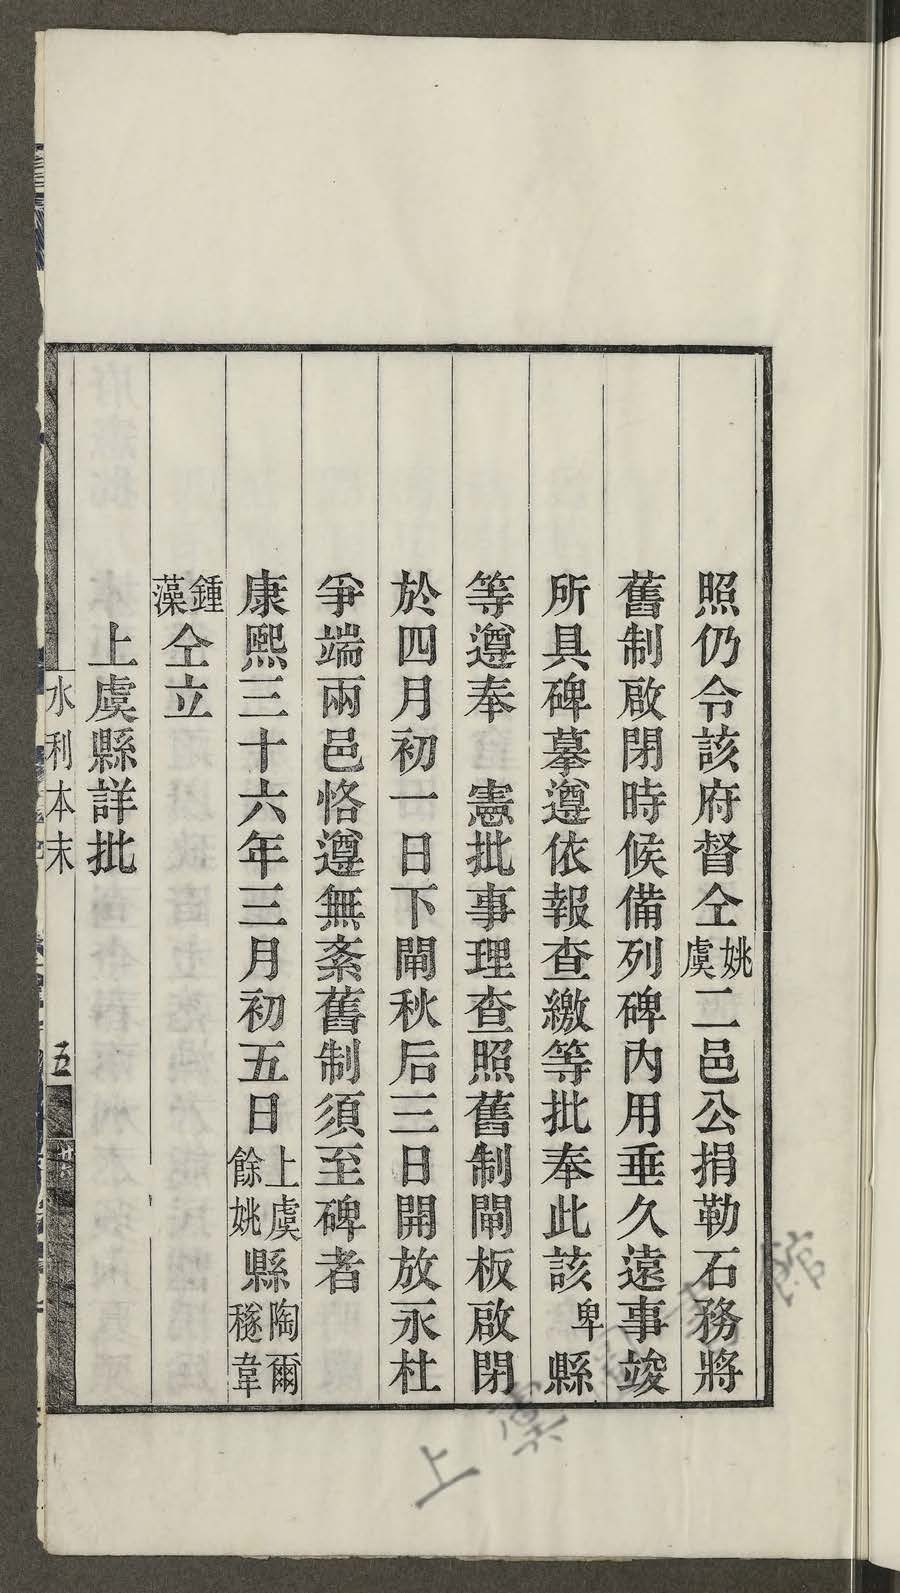 照仍令該府督仝姚虞二邑公捐勒石務將
舊制啟閉時候備列碑內用垂久遠事竣
所具碑摹遵依報查繳等批奉此該卑縣
等遵奉　憲批事理查照舊制閘板啟閉
於四月初一日下閘秋后三日開放永杜
爭端兩邑恪遵無紊舊制須至碑者
康熙三十六年三月初五日上虞餘姚縣陶爾穟韋
鍾藻仝立
上虞縣詳批
水利本末
五
上虞
館